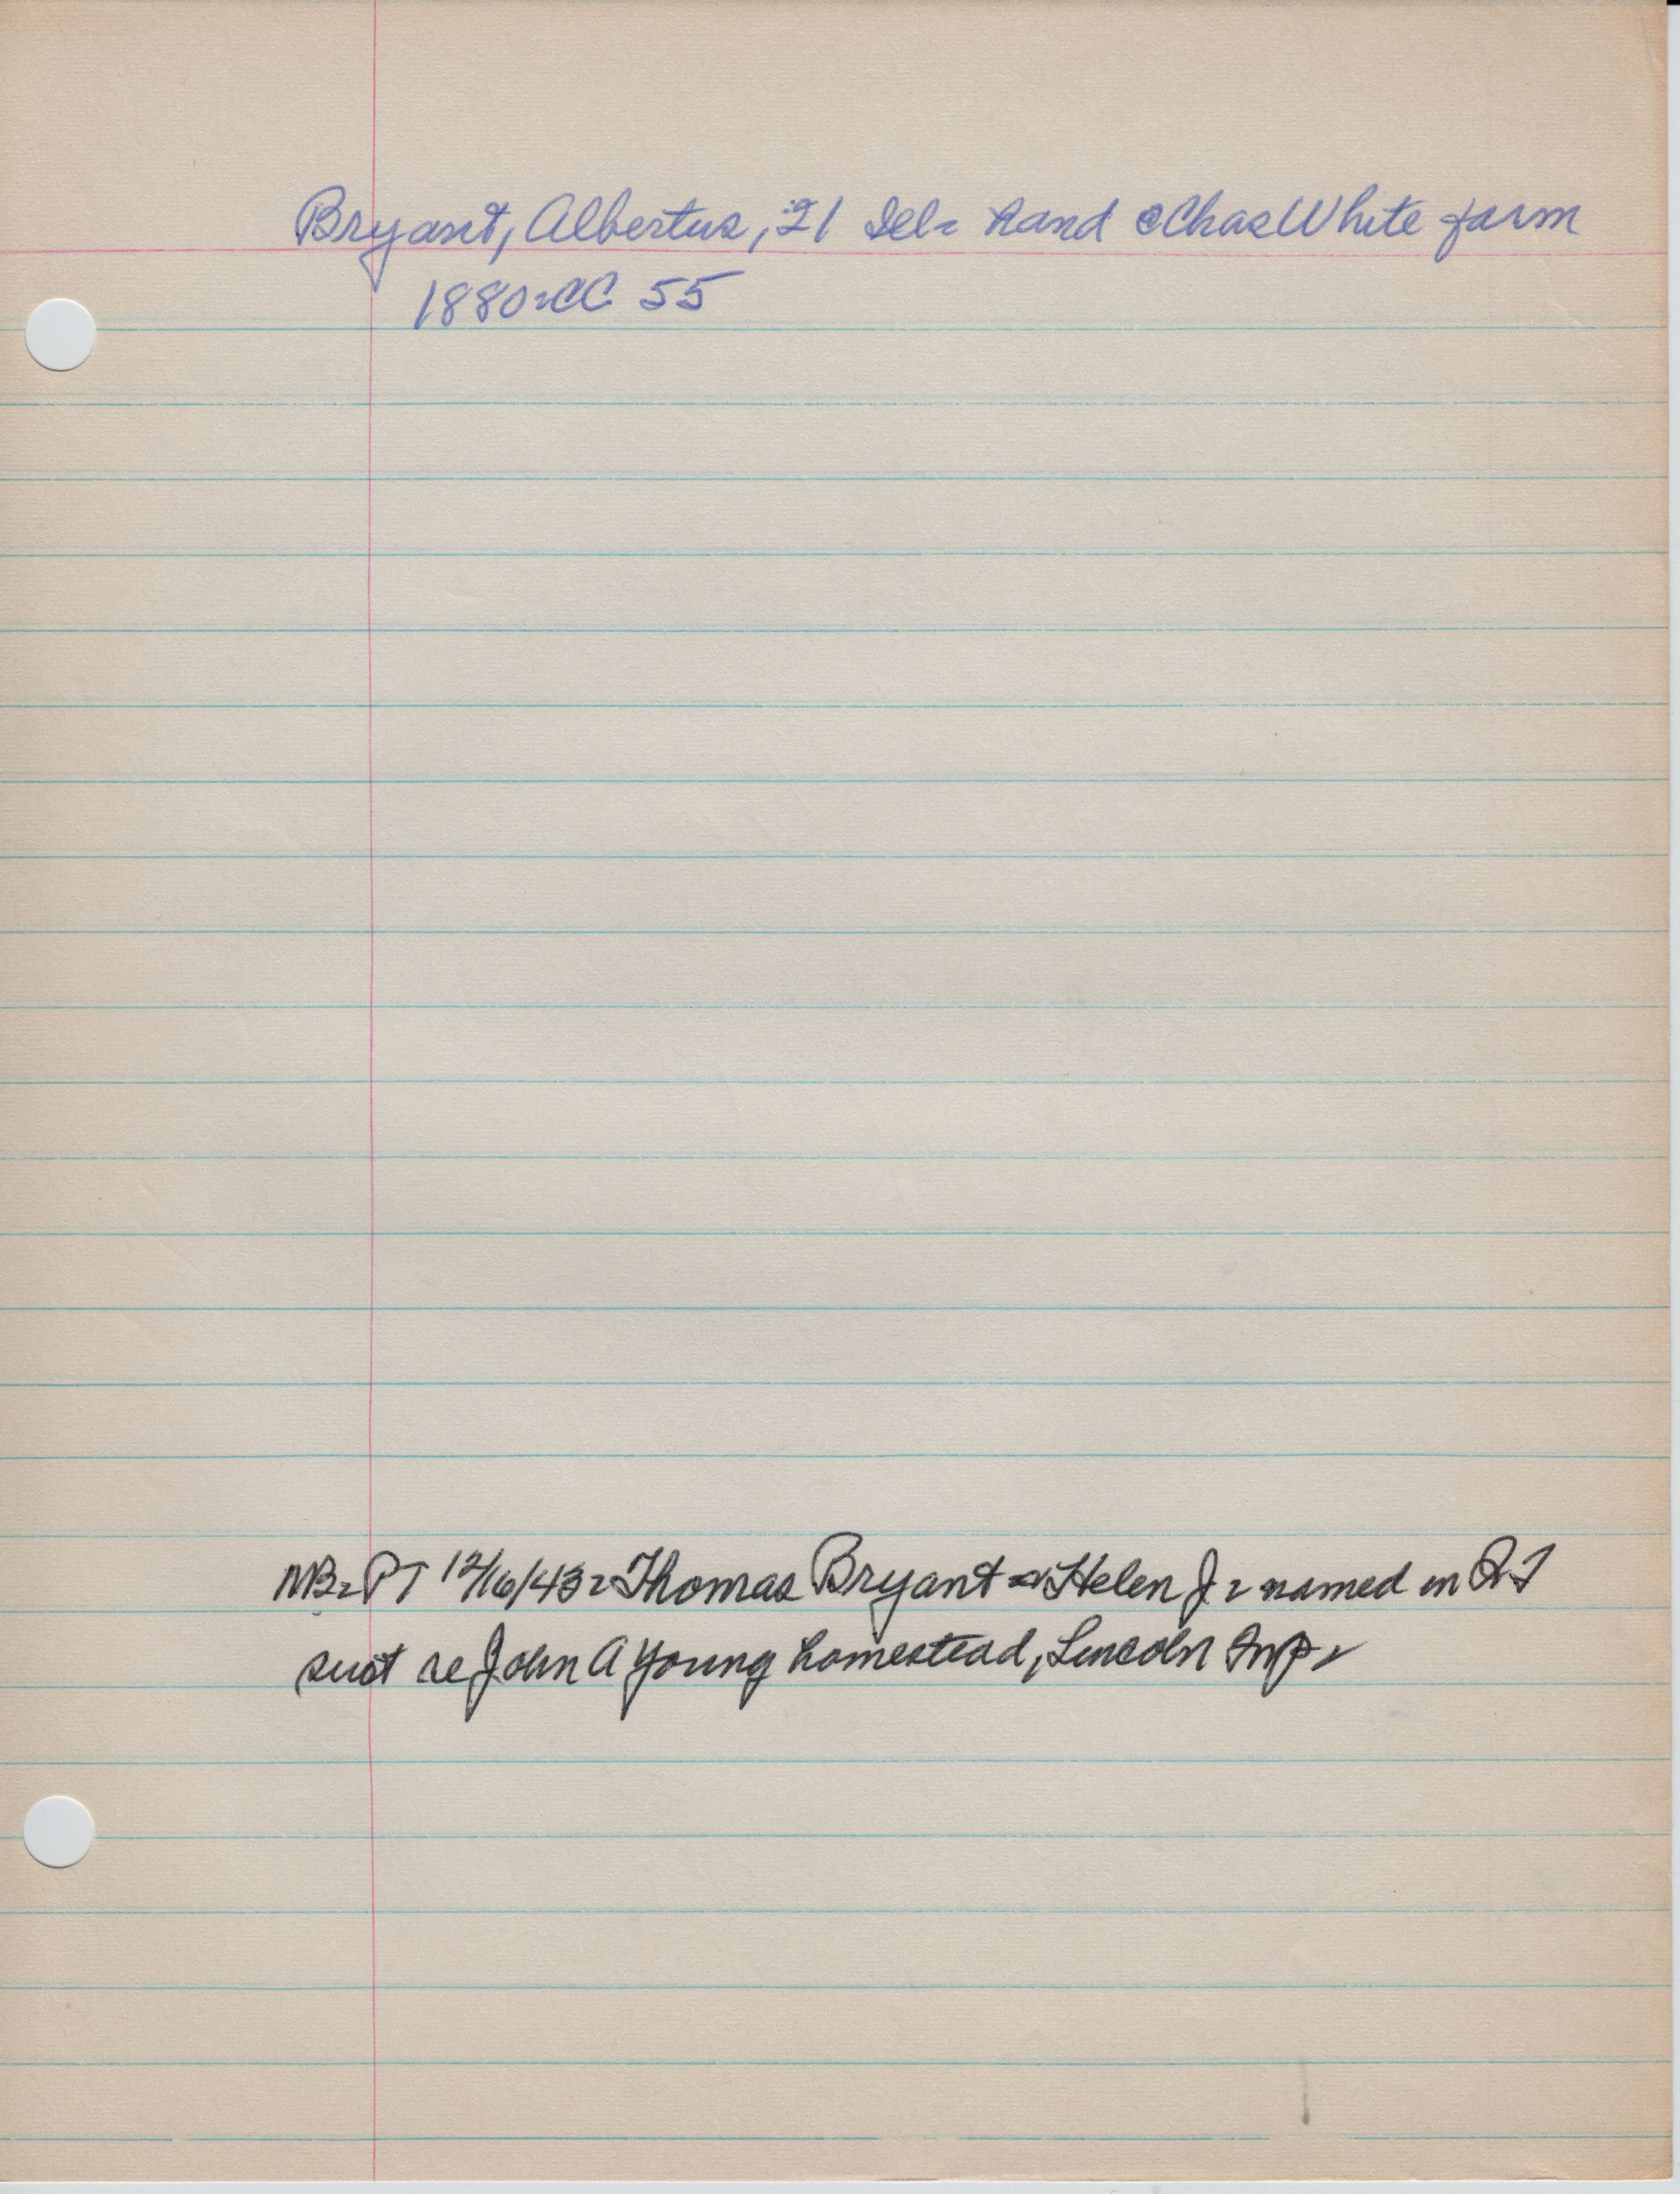 Bryant, Albertus, 21 Del- hand @ Chas White farm
1880-CC 55
MB-PT 12/6/43-Thomas Bryant Helen J - named in QT
suit re John A Young homestead, Lincoln Twp-